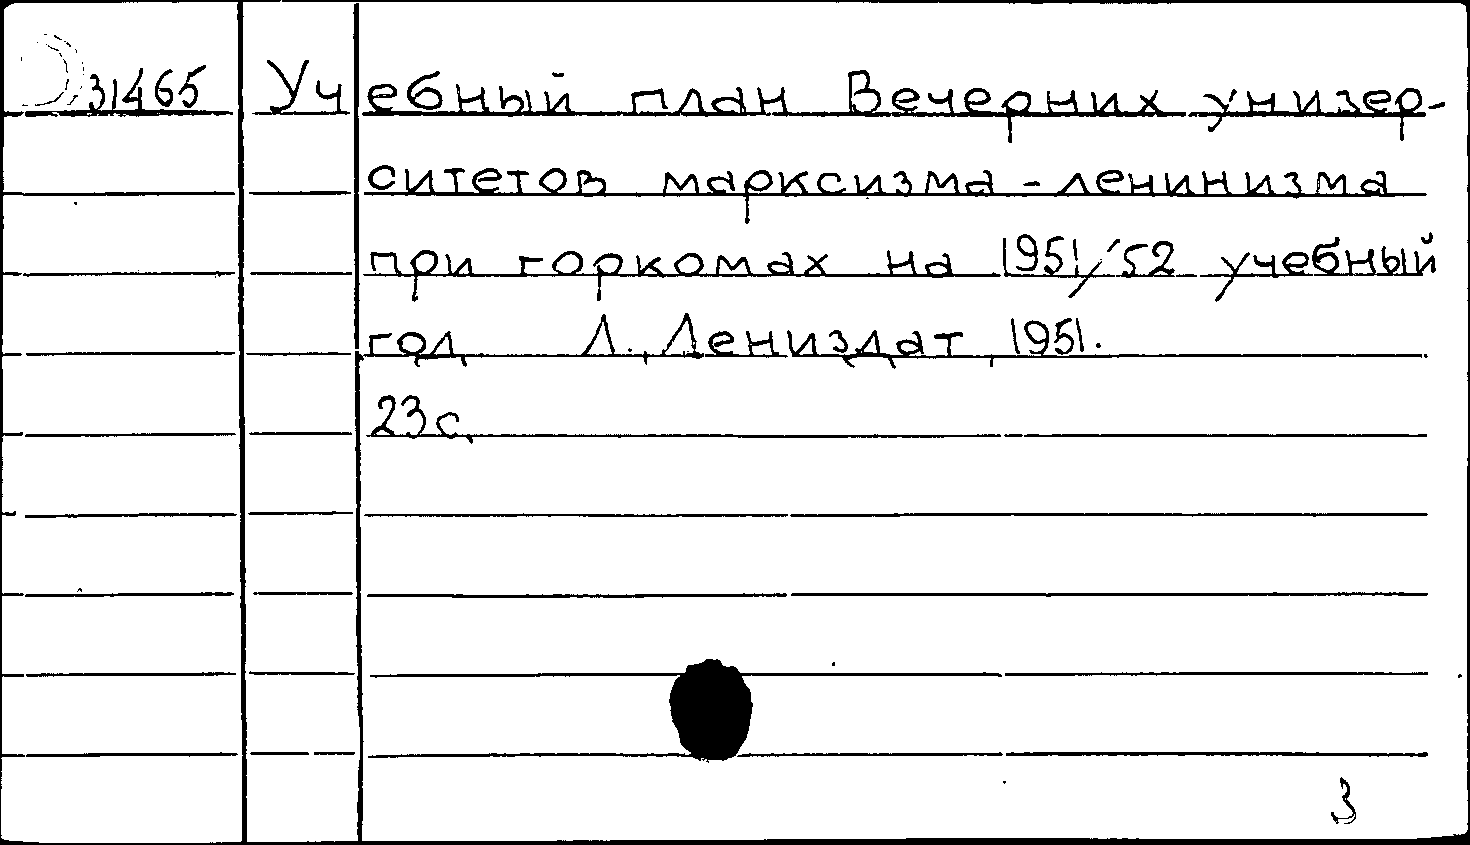 31465 Учебный план Вечерних универ-
ситетов марксизма-ленинизма
при горкомах на 1951/52 учебный
год Л., Лениздат, 1951.
23 с.
3